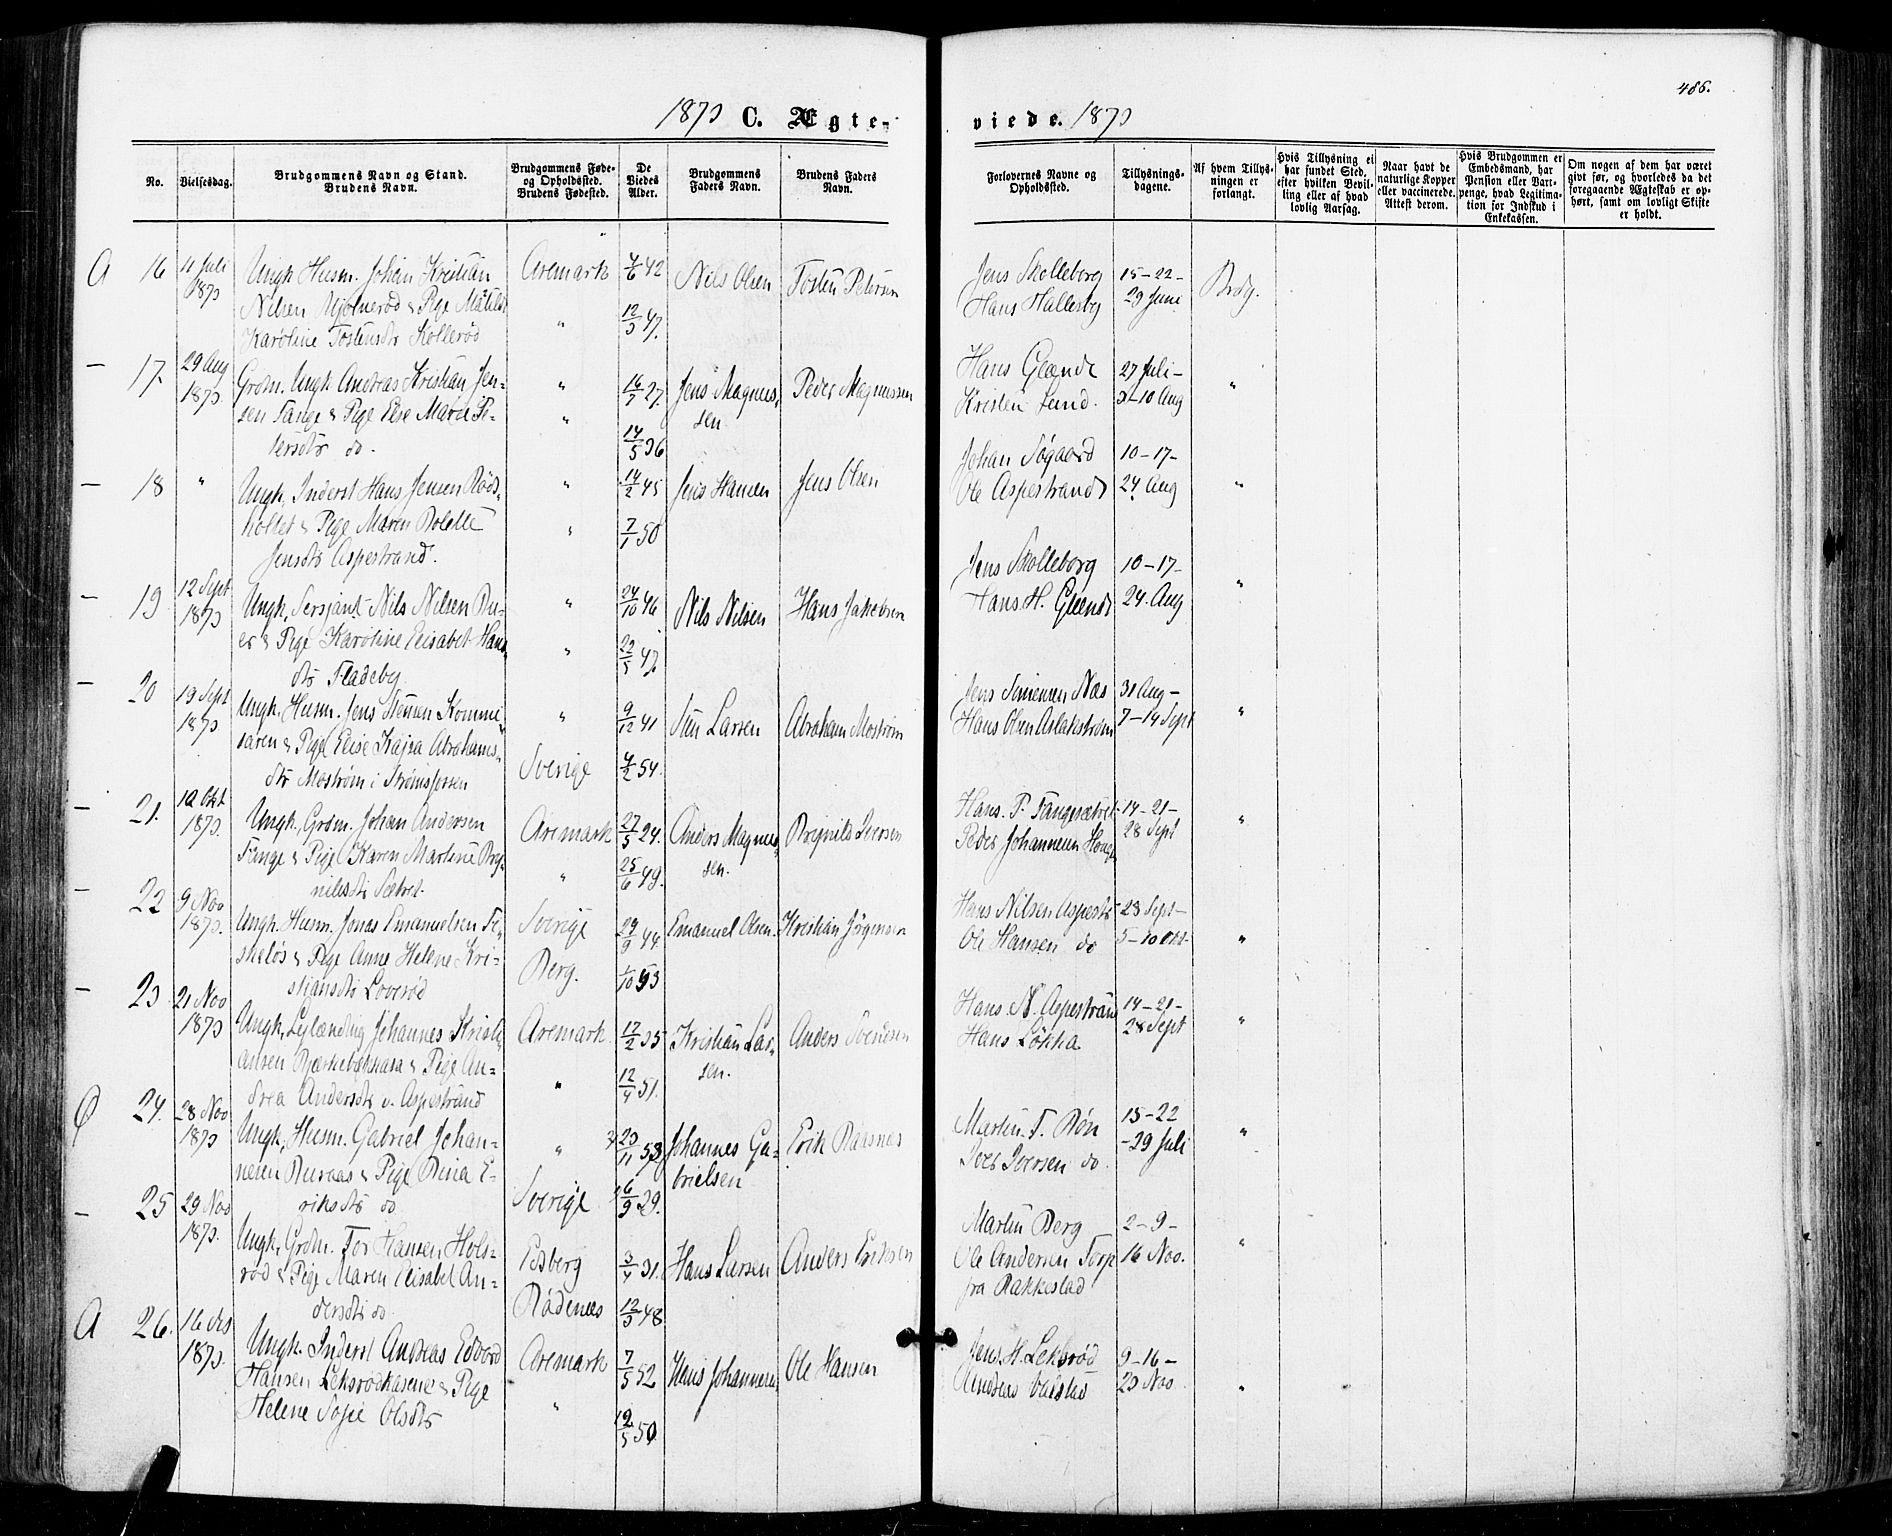 486.
1873 C. Ægte-
viede. 1873
No.
Vielsesdag.
Brudgommens Navn og Stand.
Brudens Navn.
Brudgommens Føde-
og Opholdssted.
Brudens Fødested.
De
Viedes
Alder.
Brudgommens
Faders Navn.
Brudens Faders
Navn.
Forlovernes Navne og
Opholdssted.
Tillysnings-
dagene.
Af hvem Tillys-
ningen er
forlangt.
Hvis Tillysning ei
har fundet Sted,
efter hvilken Bevil-
ling eller af hvad
lovlig Aarsag.
Naar havt de
naturlige Kopper
eller vaccinerede.
Attest derom.
Hvis Brudgommen er
Embedsmand, har
Pension eller Vart-
penge, hvad Legitima-
tion for Indskud i
Enkekassen.
Om nogen af dem har været
gift før, og hvorledes da det
foregaaende Ægteskab er op-
hørt, samt om lovligt Skifte
er holdt.
A 16 11 Juli 1873
Ungk Husm. Johan Kristian
Nilsen & Pige
Karoline Tostensdtr Kollerød
Aremark
"
4/6 42
12/3 47.
Nils Olsen
Tosten Petersen
Jens Skolleborg
Hans Hallesby
15-22-
29 Juni
Brdg.
— 17. 29 Aug 1873.
Grdm. Ungk Andreas Kristian Jen-
sen Tange & Pige Else Marie Pe-
tersdtr do.
"
"
16/7 27.
14/5 36
Jens Magnus-
sen
Peder Magnussen
Hans Glende
Kristen Lund.
27 Juli-
3-10 Aug
"
— 18 "
Ungk, Inderst Hans Jensen Røds-
holtet & Pige Maren Bolette
Jensdtr Aspestrand.
"
"
14/2 45
7/1 50
Jens Hansen
Jens Olsen
Johan Søgaard
Ole Aspestrand
10-17-
24 Aug
"
— 19 12 Sept 1873
Ungk, Sersjant Nils Nilsen Bu-
er & Pige Karoline Elisabet Hans-
dtr Fladeby.
"
"
24/10 46
22/5 47.
Nils Nilsen
Hans Jakobsen
Jens Skolleborg
Hans. H. Glende
10-17-
24. Aug
"
— 20 19 Sept 1873
Ungk. Husm. Jens Stensen Komme-
saren & Pige Elise Kajsa Abrahams-
dtr Mostrøm i Strømsfossen
"
Sverige
9/12 41
4/2 54.
Sten Larsen
Abraham Mostrøm
Jens Simensen Næs
Hans Olsen Aslakstrøm
31 Aug-
7-14 Sept
"
— 21. 10 Okt 1873.
Ungk, Grdm. Johan Andersen
Tange & Pige Karen Martine Bryn-
nildsdtr Sætret.
Aremark
"
27/5 24.
25/6 49.
Anders Magnus-
sen.
Brynild Iversen
Hans. P. Tangesætret
Peder Johannesen
14-21-
28 Sept
"
— 22 9 Nov 1873.
Ungk. Husm. Jonas Emanuelsen Fi-
skeløs & Pige Anne Helene Kri-
stiansdtr Loverød
Sverige
Berg.
29/9 44.
1/10 53
Emanuel Olsen.
Kristian Jørgensen
Hans Nilsen Aspestr
Ole Hansen do
28 Sept-
5-10 Okt.
"
— 23 21 Nov 1873
Ungk, Leylænding Johannes Kristi-
ansen & Pige An-
drea Andersdtr v. Aspestrand
Aremark.
"
17/2 35
12/4 51.
Kristian Lar-
sen.
Anders Svendsen
Hans N. Aspestrand
Hans Løkka
14-21-
28 Sept
"
Ø 24. 28 Nov 1873
Ungk, Husm. Gabriel Johan-
nesen Buraas & Pige Brina E-
riksdtr do
"
Sverige
23/11 53
6/9 29.
Johannes Ga-
brielsen
Erik Raasnæs
Martin. T. Bøn
Iver Iversen do.
15-22
-29 Juli
"
— 25 29 Nov 1873.
Ungk, Grdm. Tor Hansen Hols-
rød & Pige Maren Elisabet An-
dersdtr do.
Edsberg
Rødenæs
3/4 31.
12/3 48
Hans Larsen
Anders Eriksen
Martin Berg
Ole Andersen Torp
fra Rakkestad
2-9-
16 Nov.
"
A 26. 16 des 1873.
Ungk. Inderst Andreas Edvard
Hansen Leksrødkasene & Pige
Helene Sofie Olsdtr
Aremark
"
7/5 52
12/5 50
Hans Johannesen
Ole Hansen
Jens. H. Leksrød
Andreas
9-16-
23 Nov
"